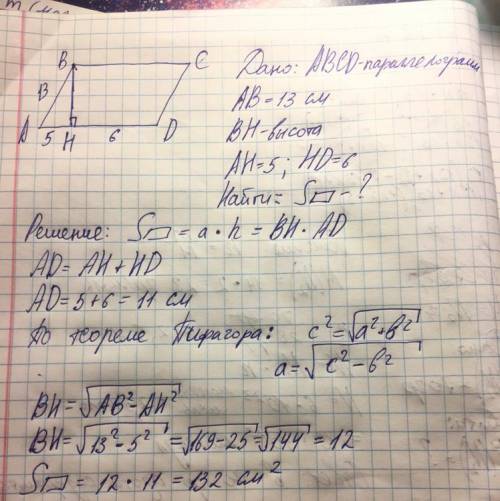 B C
13
A 5 H 6 D
Дано: ABCD-параллелограмм
AB = 13 см
BH-высота
AH=5; HD=6
Найти= S▱ - ?
Решение: S▱ = a · h = BH · AD
AD = AH + HD
AD = 5+6 = 11 см
По теореме Пифагора: c² = √a²+b²
a = √c² - b²
BH = √AB² - AH²
BH = √13² - 5² = √169-25 = √144 = 12
S▱ = 12 · 11 = 132 см²